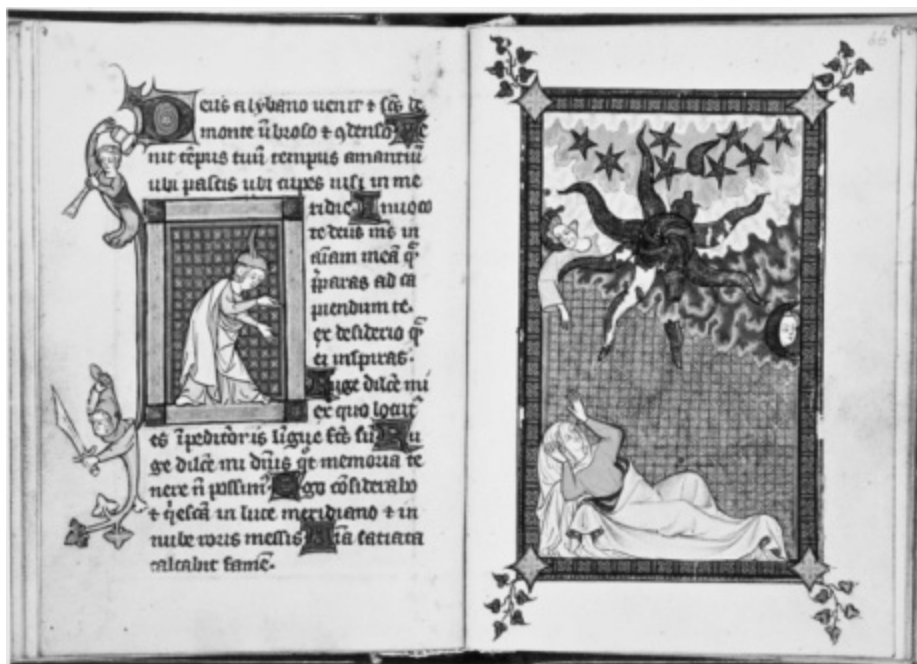 eus a lybano ueniet ⁊ scs de
monte ūbroso ⁊ ꝯdenso Ve
nit tēpus tuū tempus amantiū
ubi pascis ubi cubes nisi in me
ridie Inuoco
te deus ms in
aīam meā qͣ
p̄paras ad ca
piendum te
ex desiderio qͩ
ei inspiras.
Auge dulcē mi
ex quo locut
es īpeditoris ligue scs su
ge dulcē mi dnīs memoria te
nere ñ possum Ego cōsiderabo
⁊ qͥescā in luce meridiano ⁊ in
nube roris messis Aīa satiata
calcabit fauū.
66